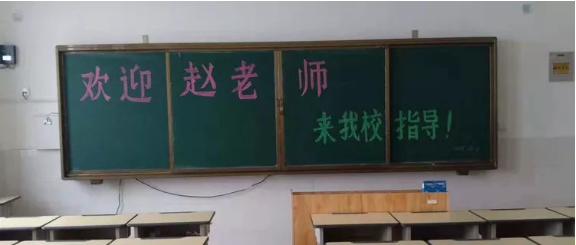 欢迎赵老师
来我校指导!